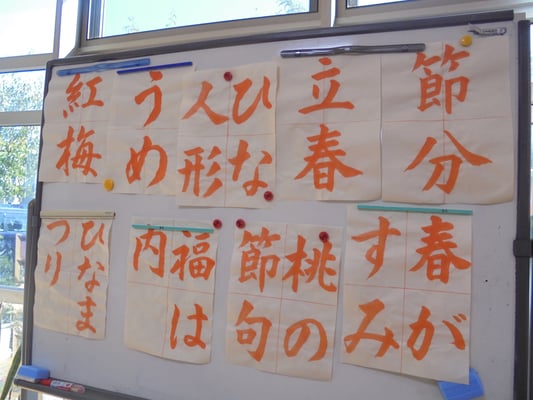 節分
立春
ひな
人形
うめ
紅梅
春が
すみ
桃の
節句
福は
内
ひなま
つり